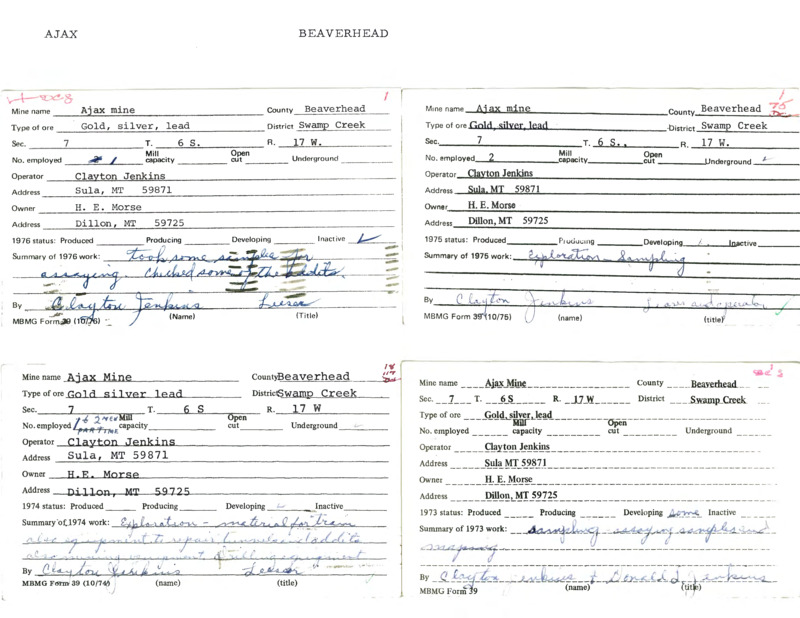 AJAX BEAVERHEAD
1
Mine name Ajax mine County Beaverhead
Type of ore Gold, silver, lead District Swamp Creek
Sec. 7 T. 6 S. R. 17 W.
No. employed 1 Mill capacity Open cut Underground
Operator Clayton Jenkins
Address Sula, MT 59871
Owner H. E. Morse
Address Dillon, MT 59725
1976 status: Produced Producing Developing Inactive ✓
Summary of 1976 work: took some samples for
assaying. Checked some of the addits.
By Clayton Jenkins Leesor
(Name) (Title)
MBMG Form 39 (10/76)
1
75
Mine name Ajax mine County Beaverhead
Type of ore Gold, silver, lead District Swamp Creek
Sec. 7 T. 6 S., R. 17 W.
No. employed 2 Mill capacity Open cut Underground ✓
Operator Clayton Jenkins
Address Sula, MT 59871
Owner H. E. Morse
Address Dillon, MT 59725
1975 status: Produced Producing Developing Inactive
Summary of 1975 work: Exploration - Sampling
By Clayton Jenkins Leasor and operator
MBMG Form 39 (10/75) (name) (title)
Mine name Ajax Mine County Beaverhead
Type of ore Gold silver lead District Swamp Creek
Sec. 7 T. 6 S R. 17 W
No. employed 1 & 2 men part time Mill capacity Open cut Underground ✓
Operator Clayton Jenkins
Address Sula, MT 59871
Owner H.E. Morse
Address Dillon, MT 59725
1974 status: Produced Producing Developing ✓ Inactive
Summary of 1974 work: Exploration - material for tram
also equipment to repair tunnels & addits
also mining equipment & drilling equipment
By Clayton Jenkins Leesor
MBMG Form 39 (10/74) (name) (title)
Mine name Ajax Mine County Beaverhead
Sec. 7 T. 6 S R. 17 W District Swamp Creek
Type of ore Gold, silver, lead
No. employed Mill capacity Open cut Underground
Operator Clayton Jenkins
Address Sula MT 59871
Owner H. E. Morse
Address Dillon, MT 59725
1973 status: Produced Producing Developing some Inactive
Summary of 1973 work: sampling assaying samples and
maping
By Clayton Jenkins & Donald J Jenkins
MBMG Form 39 (name) (title)